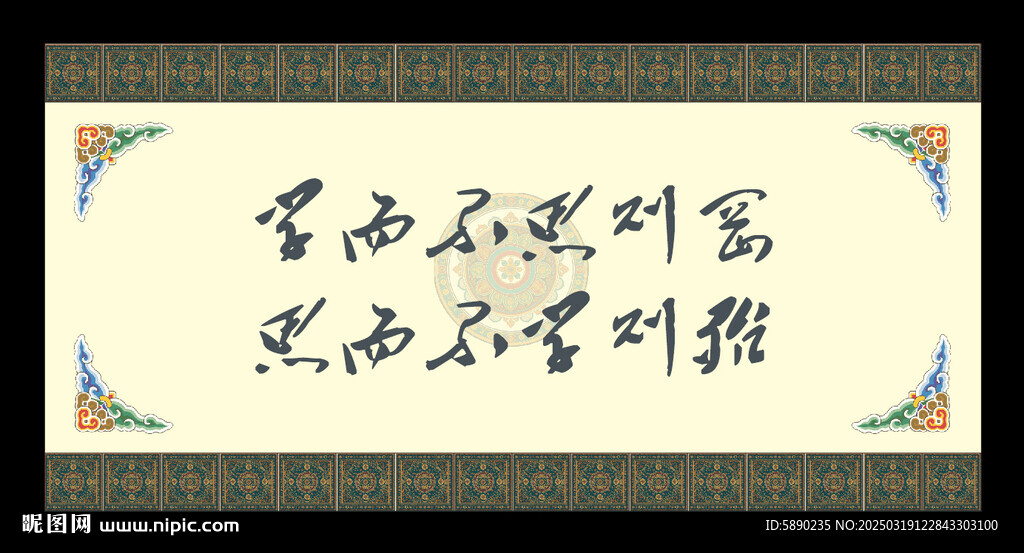 学而不思则罔
思而不学则殆
昵图网 www.nipic.com
ID:5890235 NO:20250319122843303100